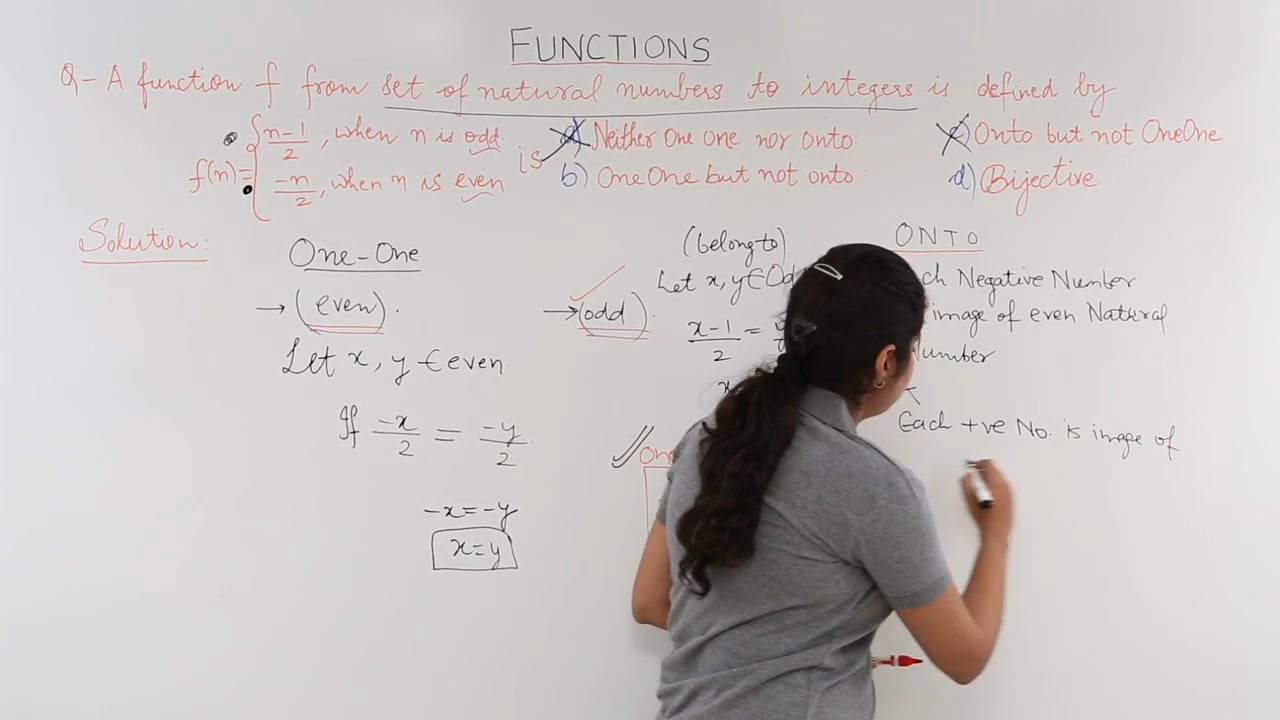 FUNCTIONS
Q- A function f from set of natural numbers to integers is defined by
f(n)= { n-1/2, when n is odd
-n/2, when n is even
is
a) Neither One one nor onto.
b) One One but not onto
c) Onto but not OneOne
d) Bijective
Solution:
One-One
→ (even).
Let x, y ∈ even.
If -x/2 = -y/2.
-x=-y
x=y
→ (odd).
(belong to)
Let x, y ∈
x-1/2 =
x
ONTO
Negative Number
image of even Natural
Number
Each +ve No. is image of